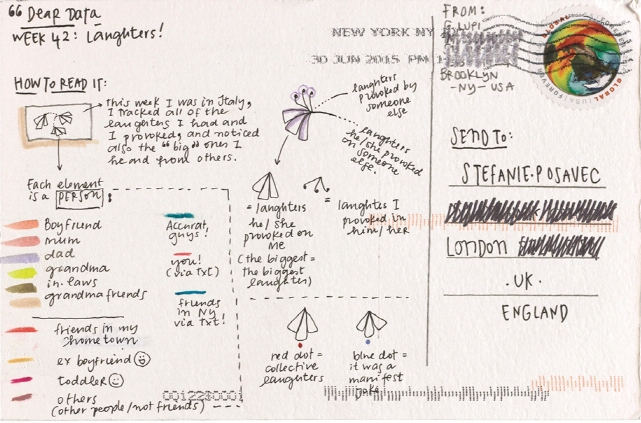 “ Dear Data
WEEK 42: Laughters!
HOW TO READ IT:
This week I was in Italy,
I tracked all of the
laughters I had and
I provoked, and noticed
also the "big" ones I
heard from others.
Each element
is a PERSON:
Boyfriend
mum
dad
grandma
in-laws
grandma friends
friends in my
hometown
ex boyfriend
toddler
others
(other people/not friends)
Accurat,
guys!
you!
(via txt)
friends
in NY
via txt!
laughters
provoked by
someone
else
laughters
he/she provoked
on someone
else.
= laughters
he/she
provoked on
me
(the biggest =
the biggest
laughter)
= laughts I
provoked in
him/her
red dot =
collective
laughters
blue dot =
it was a
manifest
joke
NEW YORK NY
30 JUN 2015 PM
FROM:
G. LUPI
BROOKLYN
-NY- USA
GLOBAL
FOREVER
SEND TO:
STEFANIE·POSAVEC
London
·UK·
ENGLAND